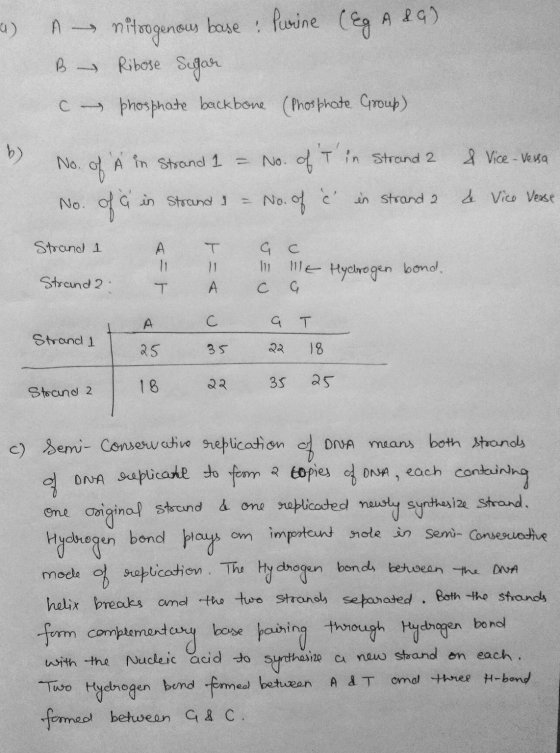 a) A → nitrogenous base : Purine (Eg A & G)
B → Ribose Sugar
C → phosphate backbone (Phosphate Group)
b) No. of 'A' in Strand 1 = No. of 'T' in Strand 2 & Vice-Versa
No. of 'G' in Strand 1 = No. of 'C' in strand 2 & Vice Verse
Strand 1 A T G C
|| || ||| ||| ← Hydrogen bond.
Strand 2: T A C G
A C G T
Strand 1 25 35 22 18
Strand 2 18 22 35 25
c) Semi-Conservative replication of DNA means both strands
of DNA replicate to form 2 copies of DNA, each containing
one original strand & one replicated newly synthesize strand.
Hydrogen bond plays an important role in semi-Conservative
mode of replication. The Hydrogen bonds between the DNA
helix breaks and the two strands separated. Both the strands
form complementary base pairing through Hydrogen bond
with the Nucleic acid to synthesize a new strand on each.
Two Hydrogen bond formed between A & T and three H-bond
formed between G & C.